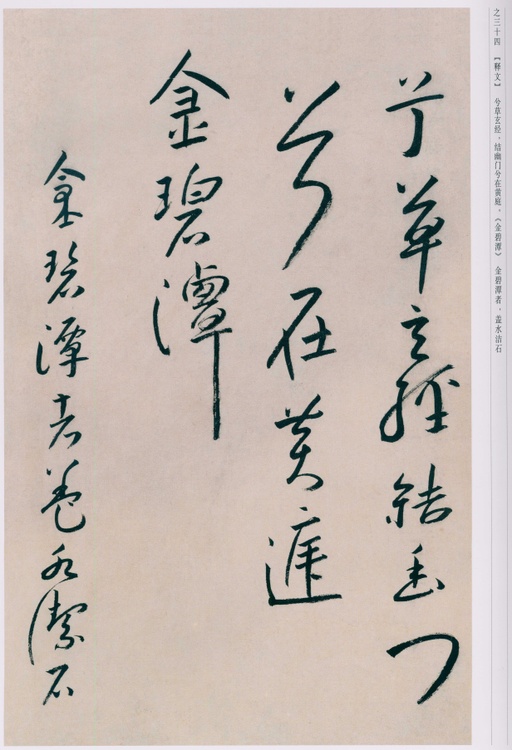 之三十四 【释文】 兮草玄经，结幽门兮在黄庭。《金碧潭》 金碧潭者，盖水洁石
兮草玄經結幽門
兮在黃庭
金碧潭
金碧潭者蓋水潔石